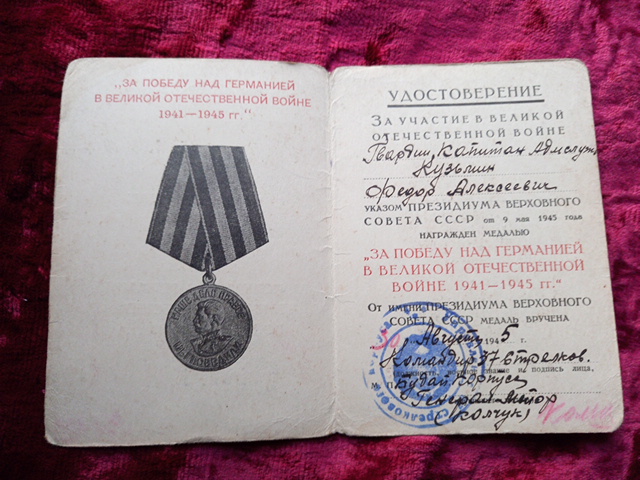 „ЗА ПОБЕДУ НАД ГЕРМАНИЕЙ
В ВЕЛИКОЙ ОТЕЧЕСТВЕННОЙ ВОЙНЕ
1941—1945 гг.“
НАШЕ ДЕЛО ПРАВОЕ
МЫ ПОБЕДИЛИ
УДОСТОВЕРЕНИЕ
ЗА УЧАСТИЕ В ВЕЛИКОЙ
ОТЕЧЕСТВЕННОЙ ВОЙНЕ
Гвардии, Капитан Адмслуж,
Кузьмин
Федор Алексеевич
УКАЗОМ ПРЕЗИДИУМА ВЕРХОВНОГО
СОВЕТА СССР от 9 мая 1945 года
НАГРАЖДЕН МЕДАЛЬЮ
„ЗА ПОБЕДУ НАД ГЕРМАНИЕЙ
В ВЕЛИКОЙ ОТЕЧЕСТВЕННОЙ
ВОЙНЕ 1941—1945 гг.“
От имени ПРЕЗИДИУМА ВЕРХОВНОГО
СОВЕТА СССР МЕДАЛЬ ВРУЧЕНА
Август 1945 г.
Командир 37 Стрелков.
звание и подпись лица,
Будап. Корпуса
Генерал-Майор
(Колчук)